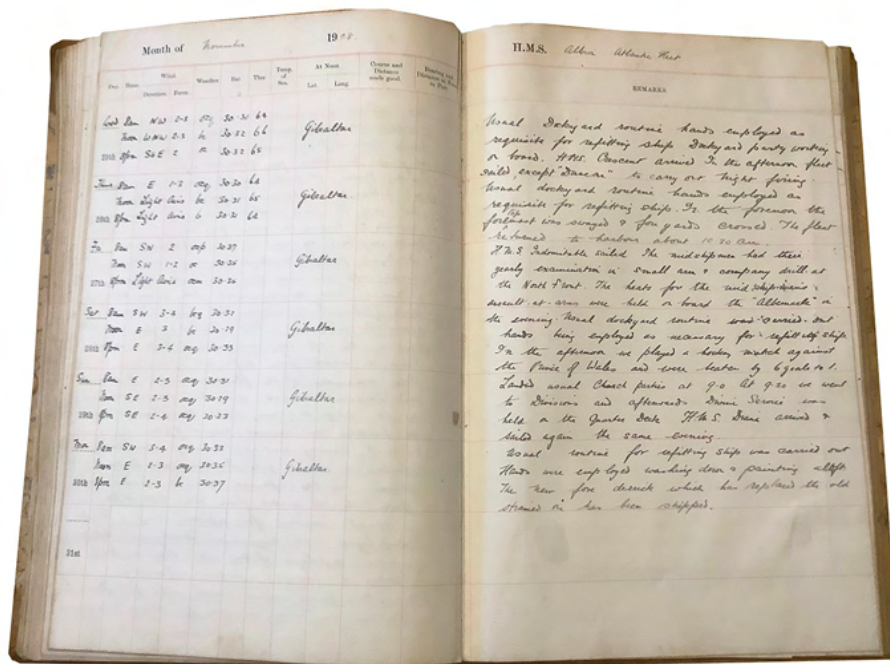 Month of November 1908.
Day. Hour. Wind Direction. Force. Weather. Bar. Ther. Temp. of Sea. At Noon Lat. Long. Course and Distance made good.
Wed 8am NW 2-3 30.31 64
Noon WNW 2-3 bc 30.32 66 Gibraltar
25th 8pm 2 30.32 65
Thur 8am E 1-2 30.30 64
Noon Light Airs bc 30.31 65 Gibraltar
26th 8pm Light Airs b 30.31 64
Fri 8am SW 2 30.27
Noon SW 1-2 30.26 Gibraltar
27th 8pm Light Airs 30.26
Sat 8am SW 3-4 30.31
Noon E 3 bc 30.29 Gibraltar
28th 8pm E 3-4 30.33
Sun 8am E 2-3 30.31
Noon SE 2-3 30.29 Gibraltar
29th 8pm SE 2-4 30.33
Mon 8am SW 3-4 30.35
Noon E 2-3 30.35 Gibraltar
30th 8pm E 2-3 bc 30.37
31st
H.M.S. Albion Atlantic Fleet
REMARKS
Usual Dockyard routine hands employed as
requisite for refitting ship Dockyard party working
on board. H.M.S. Crescent arrived In the afternoon fleet
sailed, except to carry out night firing
Usual dockyard routine hands employed as
requisite for refitting ship. In the forenoon the
was swayed & fore yards crossed The fleet
returned to harbour about 10.30 am.
H.M.S Indomitable sailed The midshipmen had their
yearly examination in small arm & company drill at
the North Front. The heats for the midshipmen's
assault-at-arms were held on board the "Albemarle" in
the evening. Usual dockyard routine was carried out
hands being employed as necessary for refitting ship
In the afternoon we played a hockey match against
the Prince of Wales and were beaten by 6 goals to 1.
Landed usual Church parties at 9.0 At 9.20 we went
to Divisions and afterwards Divine Service was
held on the Quarter Deck H.M.S. Diana arrived &
sailed again the same evening.
Usual routine for refitting ship was carried out
Hands were employed washing down & painting aloft
The new fore derrick which has replaced the old
strained has been shipped.